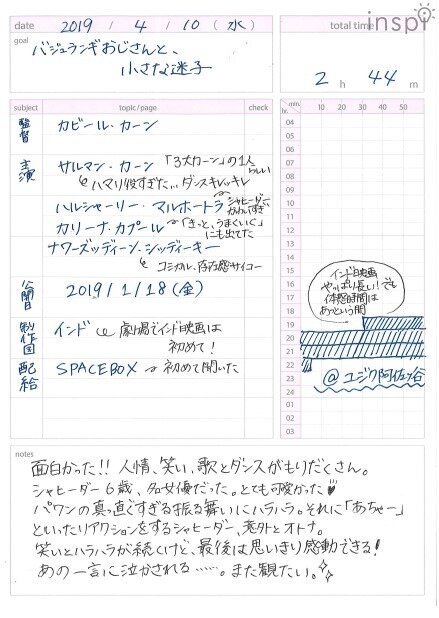 inspi
date 2019 / 4 / 10 (水)
total time
goal
バジュランギおじさんと、
小さな迷子
2 h 44 m
subject topic/page check
min. 10 20 30 40 50 60
hr.
監督 カビール・カーン
主演 サルマン・カーン 「3大カーン」の1人らしい
ハマり役すぎた... ダンスキレッキレ
ハルシャーリー・マルホートラ シャヒーダーかわいすぎ
カリーナ・カプール 「きっと、うまくいく」にも出てた
ナワーズッディーン・シッディーキー
コミカル、存在感サイコー
公開日 2019/1/18(金)
製作国 インド 劇場でインド映画は
初めて!
配給 SPACEBOX 初めて聞いた
04
05
06
07
08
09
10
11
12
13
14
15
16
17
18
19
20
21
22
23
24
01
02
03
インド映画
やっぱり長い!でも
体感時間は
あっという間
@ユジク阿佐ヶ谷
notes
面白かった!! 人情、笑い、歌とダンスがもりだくさん。
シャヒーダー6歳、名女優だった。とても可愛かった♥
パワンの真っ直ぐすぎる振る舞いにハラハラ。それに「あちゃー」
といったリアクションをするシャヒーダー、意外とオトナ。
笑いとハラハラが続くけど、最後は思いきり感動できる!
あの一言に泣かされる……。また観たい。